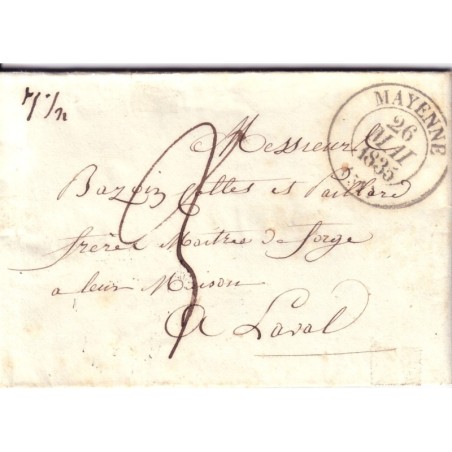 7 1/2
MAYENNE
26
MAI
1835
Messieurs
Bazoin et Paillard
frères Maitres de forge
a leur Maison
3
A Laval